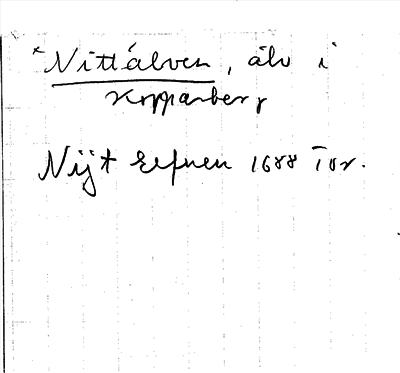 * Nittälven, älv i
Kopparberg
Nijt Elfuen 1688 Tor.